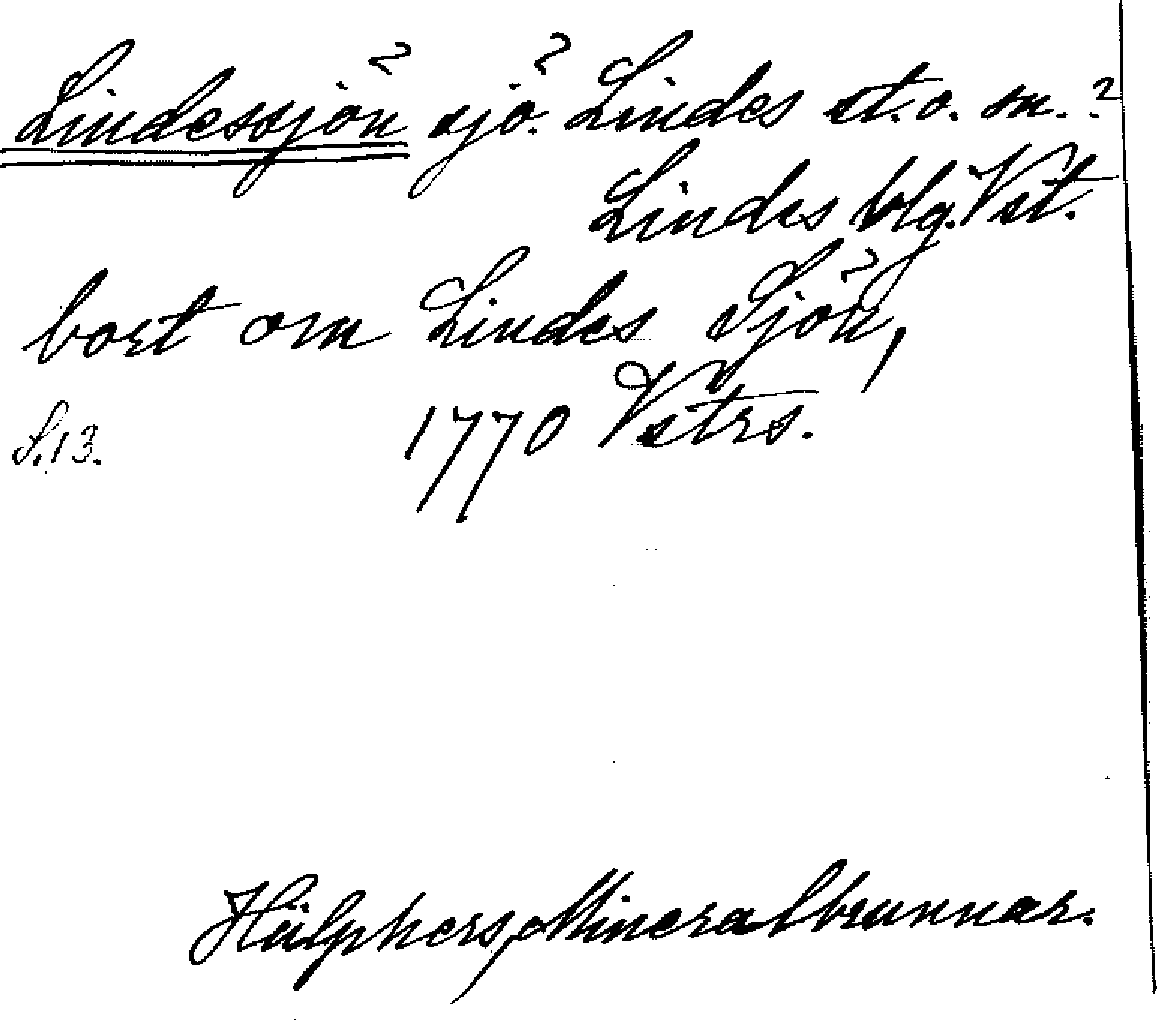 Lindessjön sjö. Lindes st. o. sn.?
Lindes blg. Vst.
bort om Lindes Sjön,
S. 13. 1770 Vstrs.
Hülphers, Mineralbrunnar.